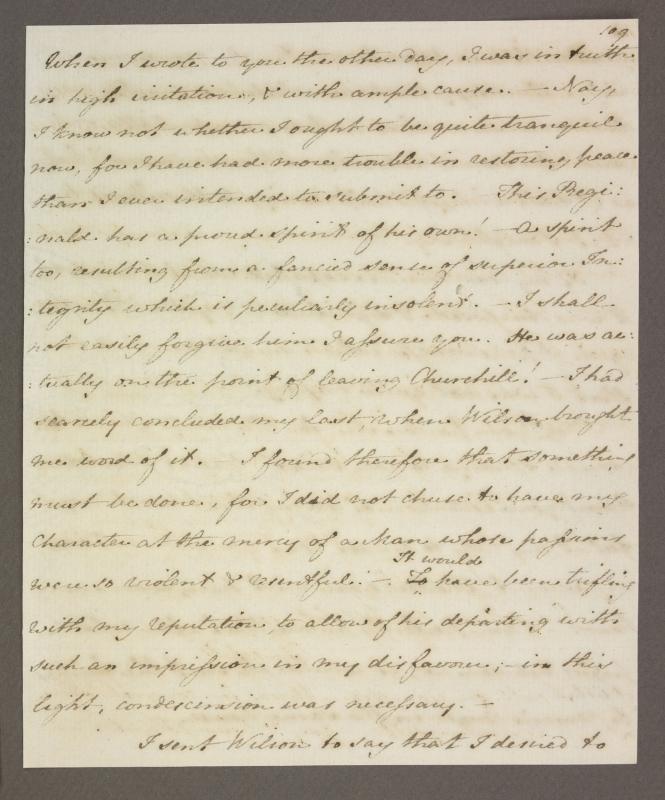 109
When I wrote to you the other day, I was in truth
in high irritation, & with ample cause. — Nay,
I know not whether I ought to be quite tranquil
now, for I have had more trouble in restoring peace
than I ever intended to submit to. — This Regi:
:nald has a proud spirit of his own! — a spirit
too, resulting from a fancied sense of superior In:
:tegrity which is peculiarly insolent. — I shall
not easily forgive him I assure you. He was ac:
:tually on the point of leaving Churchill! — I had
scarcely concluded my last, when Wilson brought
me word of it. — I found therefore that something
must be done, for I did not chuse to have my
Character at the mercy of a Man whose passions
were so violent & resentful. — It would
To have been trifling
with my reputation, to allow of his departing with
such an impression in my disfavour; — in this
light, condescension was necessary. —
I sent Wilson to say that I desired to